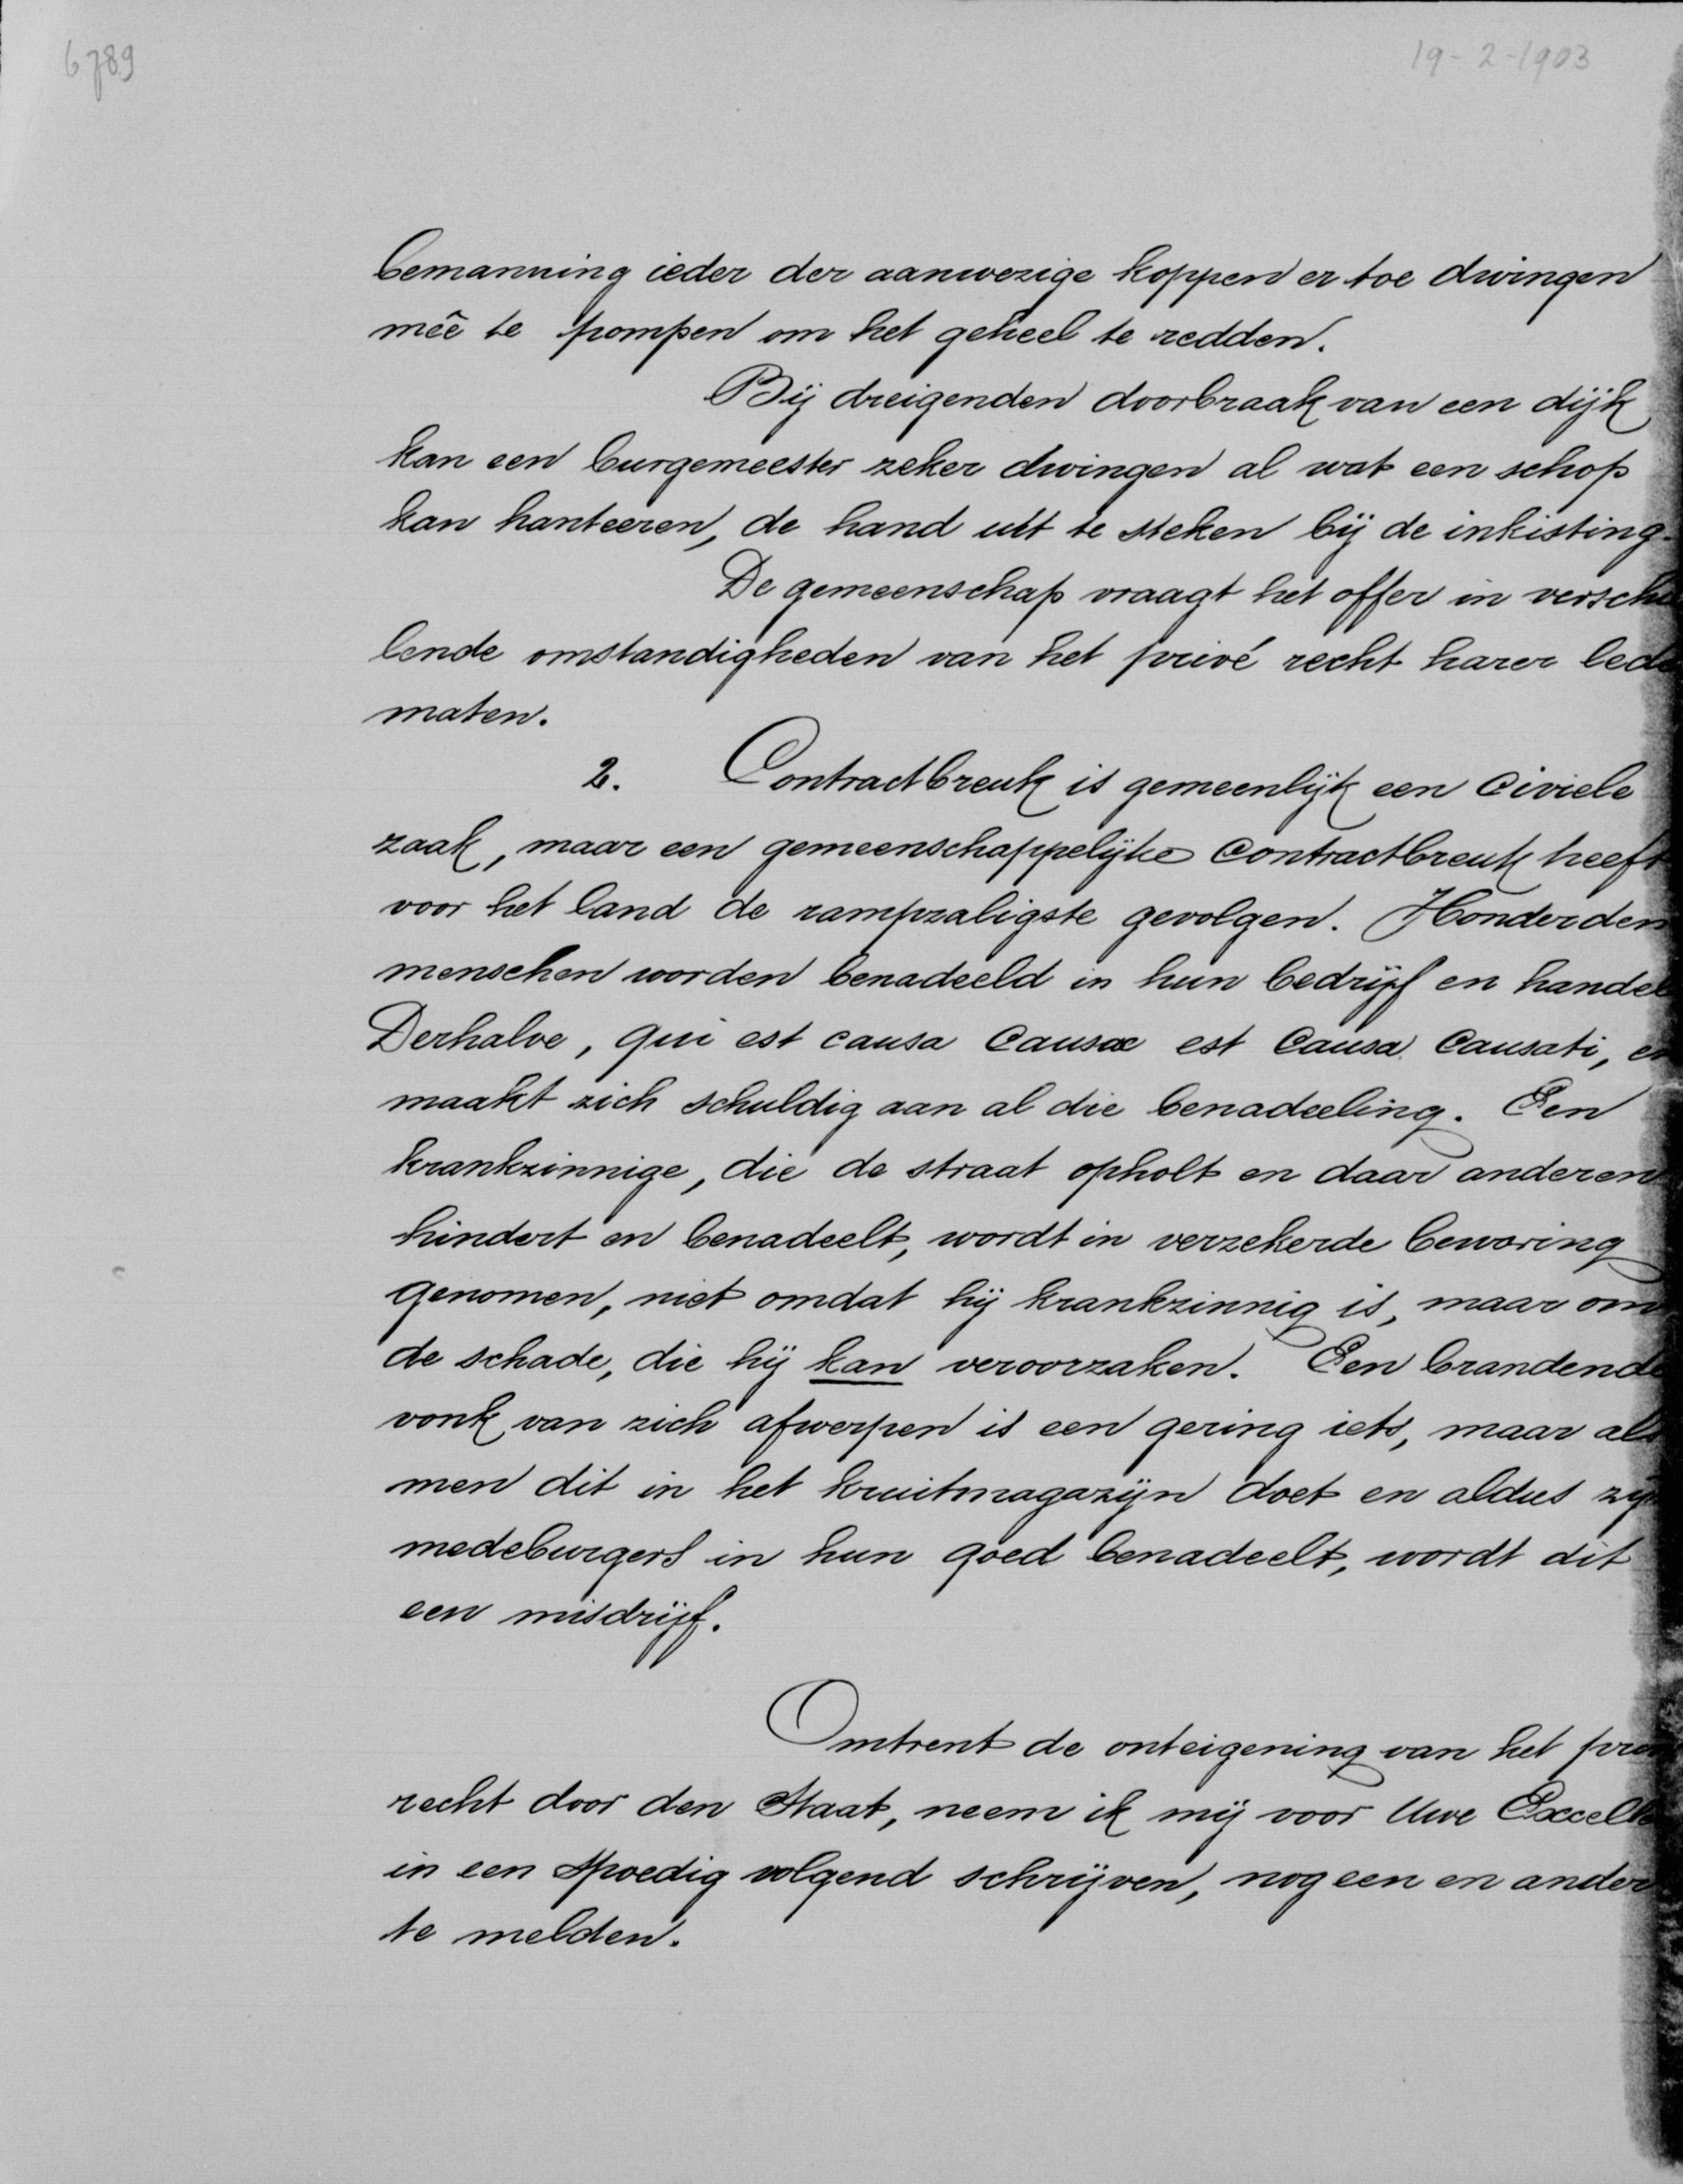 6789
19-2-1903
bemanning ieder der aanwezige koppen er toe dwingen
meê te pompen om het geheel te redden.
Bij dreigenden doorbraak van een dijk
kan een burgemeester zeker dwingen al wat een schop
kan hanteeren, de hand uit te steken bij de inkisting.
De gemeenschap vraagt het offer in verschi
lende omstandigheden van het privé recht harer lede
maten.
2. Contractbreuk is gemeenlijk een civiele
zaak, maar een gemeenschappelijke contractbreuk heeft
voor het land de rampzaligste gevolgen. Honderden
menschen worden benadeeld in hun bedrijf en handel
Derhalve, qui est causa causae est causa causati, en
maakt zich schuldig aan al die benadeeling. Een
krankzinnige, die de straat opholt en daar anderen
hindert en benadeelt, wordt in verzekerde bewaring
genomen, niet omdat hij krankzinnig is, maar om
de schade, die hij kan veroorzaken. Een brandende
vonk van zich afwerpen is een gering iets, maar als
men dit in het kruitmagazijn doet en aldus zijn
medeburgers in hun goed benadeelt, wordt dit
een misdrijf.
Omtrent de onteigening van het
recht door den Staat, neem ik mij voor Uwe Excelle
in een spoedig volgend schrijven, nog een en ander
te melden.